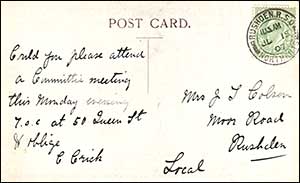 POST CARD.
RUSHDEN. R.S.O.
JL 15
Could you please attend
a Committee meeting
this Monday evening
7.0.c at 50 Queen St
& oblige
C Crick
Mrs J T Colson
Moor Road
Rushden
Local